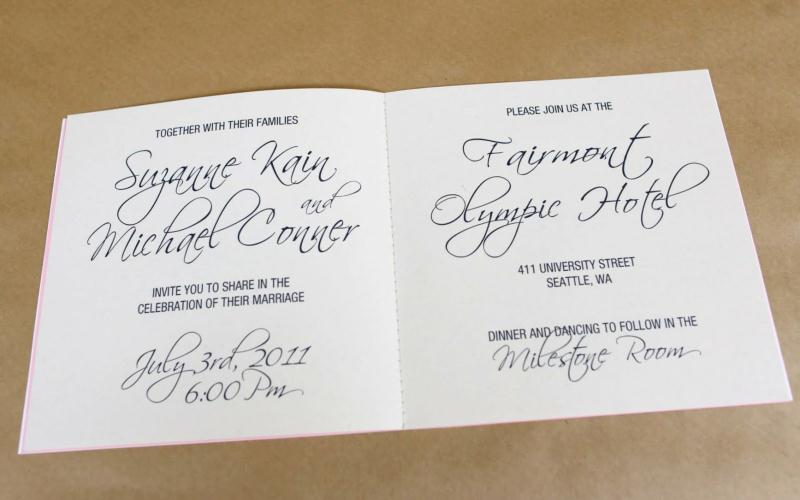 TOGETHER WITH THEIR FAMILIES
Suzanne Kain
and
Michael Conner
INVITE YOU TO SHARE IN THE
CELEBRATION OF THEIR MARRIAGE
July 3rd, 2011
6:00 Pm
PLEASE JOIN US AT THE
Fairmont
Olympic Hotel
411 UNIVERSITY STREET
SEATTLE, WA
DINNER AND DANCING TO FOLLOW IN THE
Milestone Room